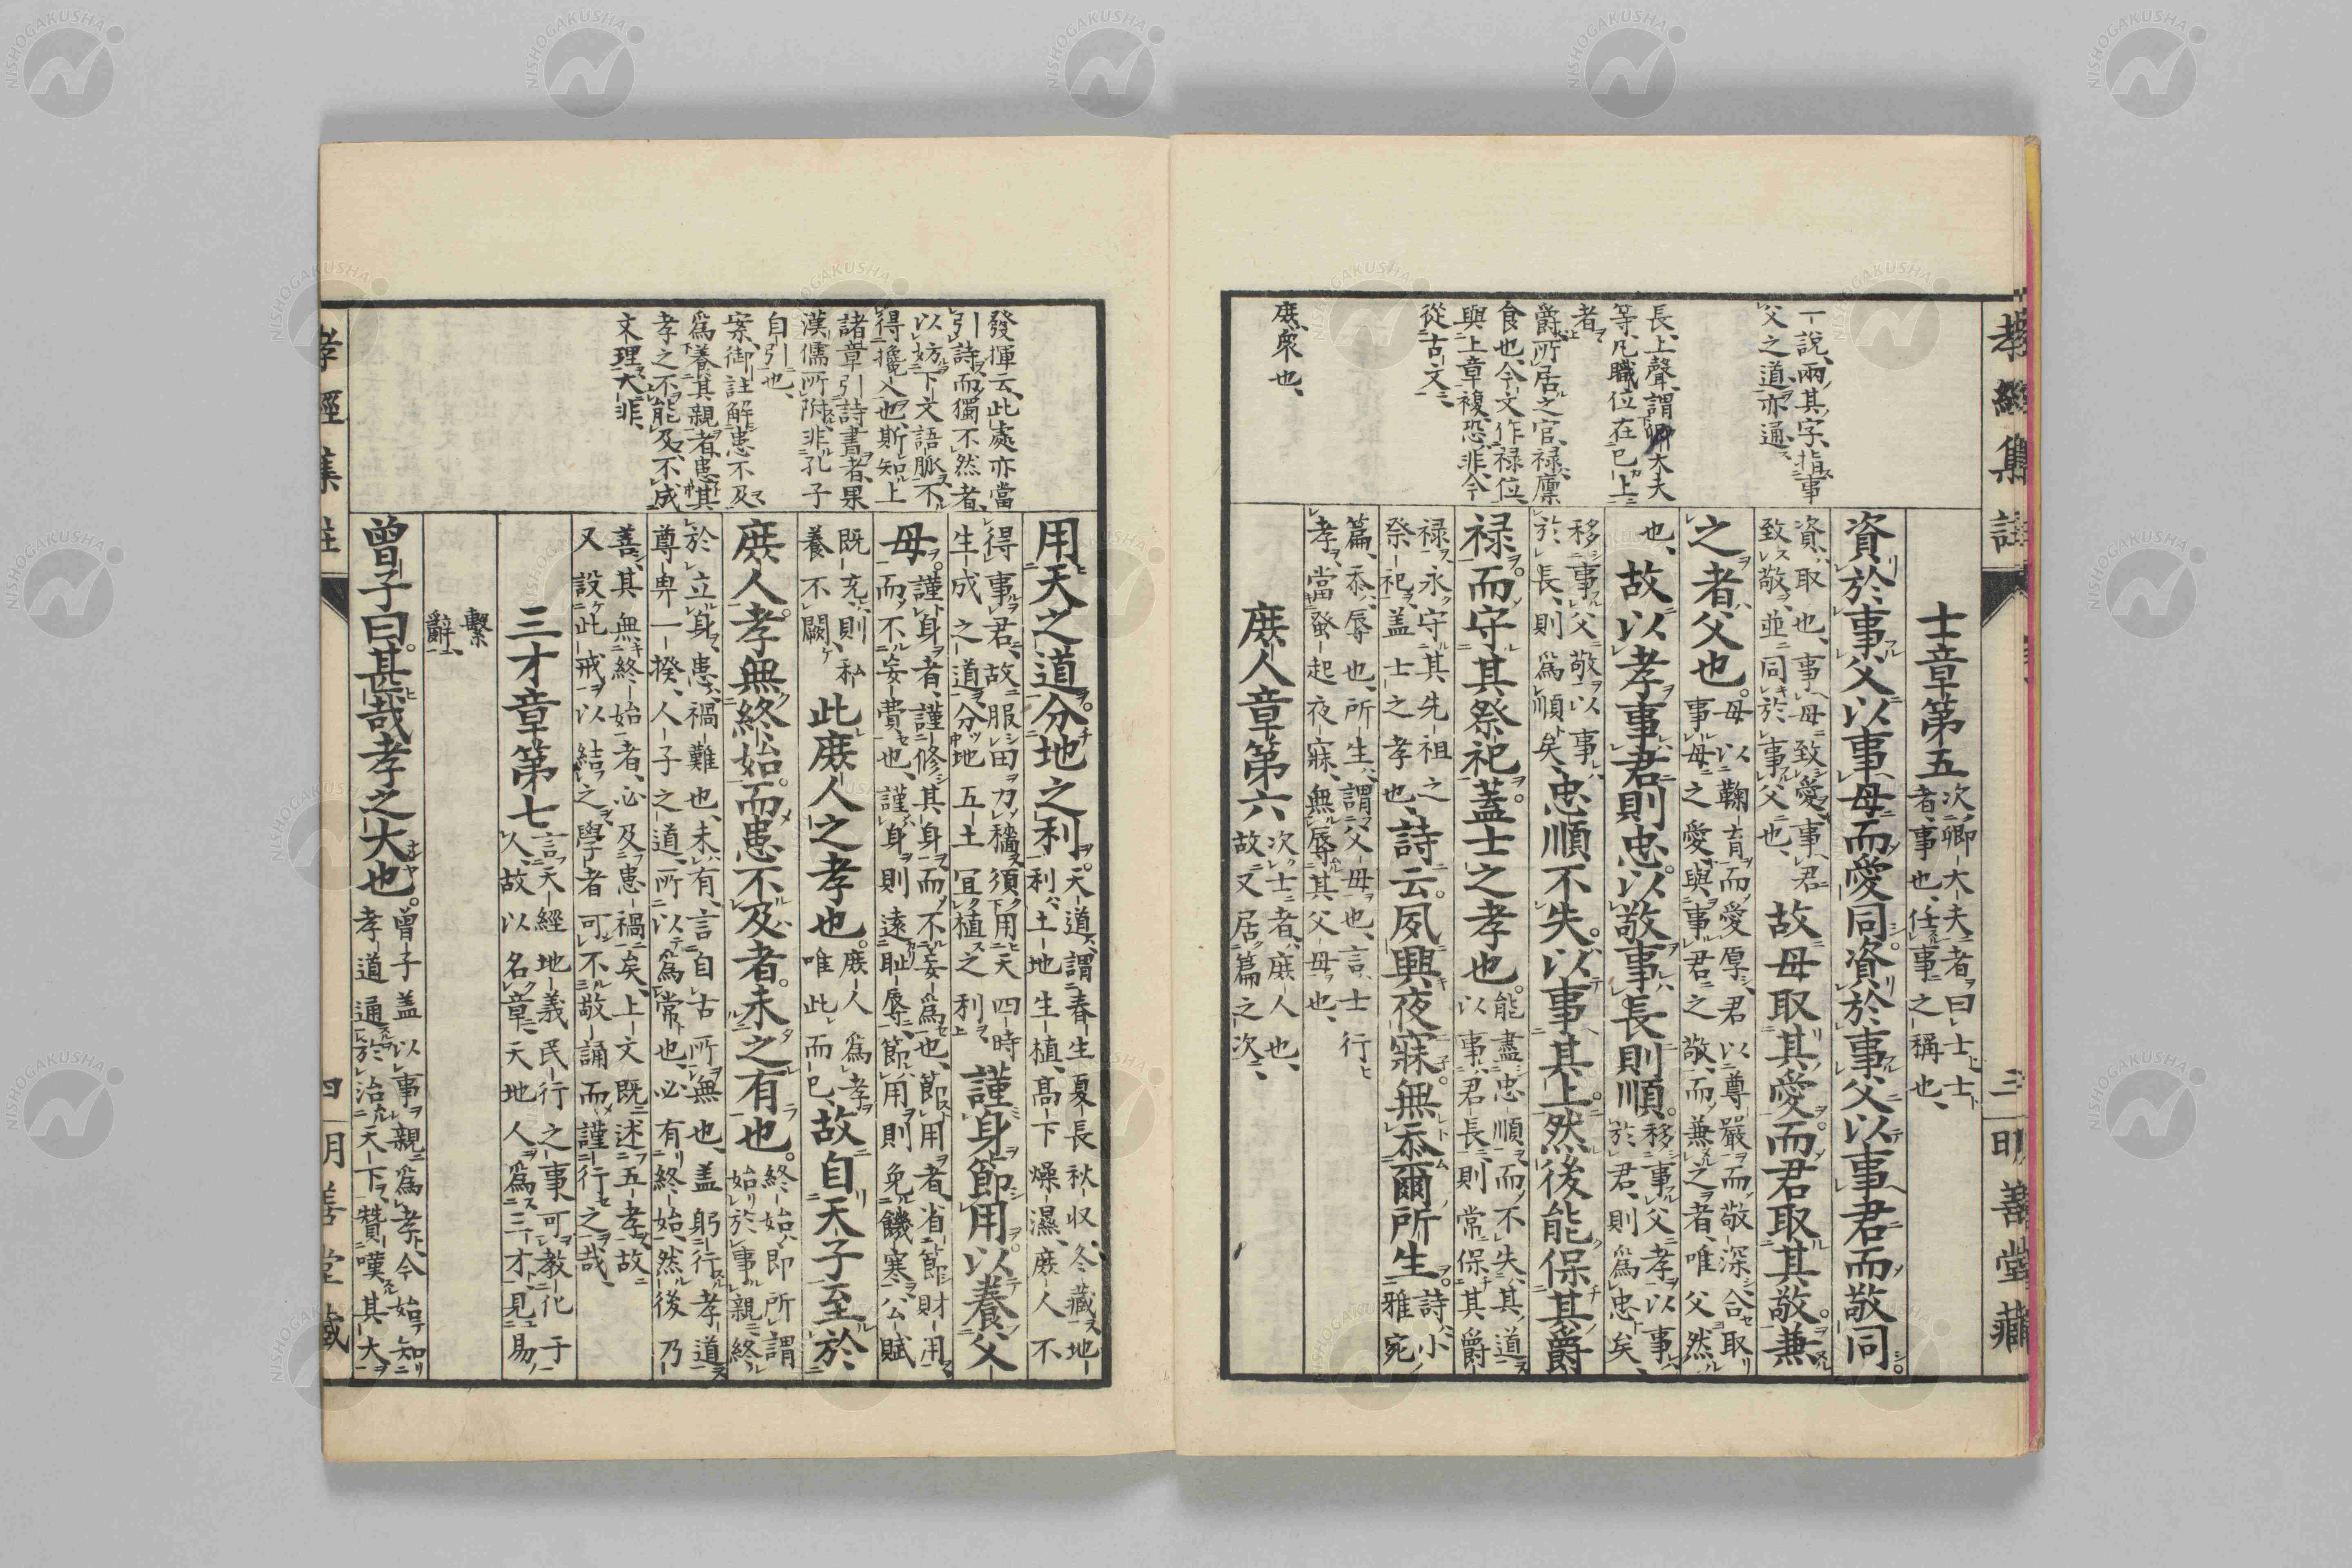 孝經集註
三
明善堂藏
一說、兩其字、指事
父之道、亦通、
長、上聲、謂卿大夫
等、凡職位在己上
者、
爵、所居之官、禄、廩
食也、今文作禄位、
與上章複、恐非、今
從古文、
庶、衆也、
士章第五
次卿大夫者曰士、士
者、事也、任事之稱也、
資於事父以事母而愛同。資於事父以事君而敬同。
資、取也、事母致愛、事君
致敬、並同於事父也、
故母取其愛。而君取其敬。兼
之者、父也。
母以鞠育而愛厚、君以尊嚴而敬深、合取
事母之愛、與事君之敬、而兼之者、唯父然
也、
故以孝事君則忠。以敬事長則順。
移事父孝以事
於君、則爲忠矣、
移事父敬以事
於長、則爲順矣、
忠順不失。以事其上。然後能保其爵
禄。而守其祭祀。蓋士之孝也。
能盡忠順而不失其道、
以事君長、則常保其爵
禄、永守其先祖之
祭祀、蓋士之孝也、
詩云。夙興夜寐。無忝爾所生。
詩小
雅宛
篇、忝、辱也、所生、謂父母也、言士行
孝、當蚤起夜寐、無辱其父母也、
庶人章第六
次士者、庶人也、
故又居篇之次、
發揮云、此處亦當
引詩、而獨不然者、
以妨下文語脈、不
得攙入也、斯知上
諸章引詩書者、果
漢儒所附、非孔子
自引也、
案、御註解患不及
爲養其親者、患其
孝之不能及、不成
文理、大非、
用天之道。分地之利。
天道、謂春生夏長秋收冬藏、地
利、土地生植、高下燥濕、庶人不
得事君、故服田力穡、須用天四時
生成之道、分地五土宜植之利、
謹身節用。以養父
母。
謹身者、謹修其身、而不妄爲也、節用者、省節財用、
而不妄費也、謹身則遠恥辱、節用則免饑寒、公賦
既充、則私
養不闕、
此庶人之孝也。
庶人爲孝、
唯此而已、
故自天子至於
庶人。孝無終始。而患不及者。未之有也。
終始、即所謂
始於事親、終
於立身、患、禍難也、未有、言自古所無也、蓋躬行孝道、
尊卑一揆、人子之道、所以爲常也、必有終始、然後乃
善、其無終始者、必及患禍矣、上文既述五孝、故
又設此戒以結之、學者可不敬誦而謹行之哉、
三才章第七
言天經地義民行之事、可教化于
人、故以名章、天地人爲三才、見易
繫
辭、
曾子曰。甚哉孝之大也。
曾子蓋以事親爲孝、今始知
孝道通於治天下、贊嘆其大
孝經集註
四
明善堂藏